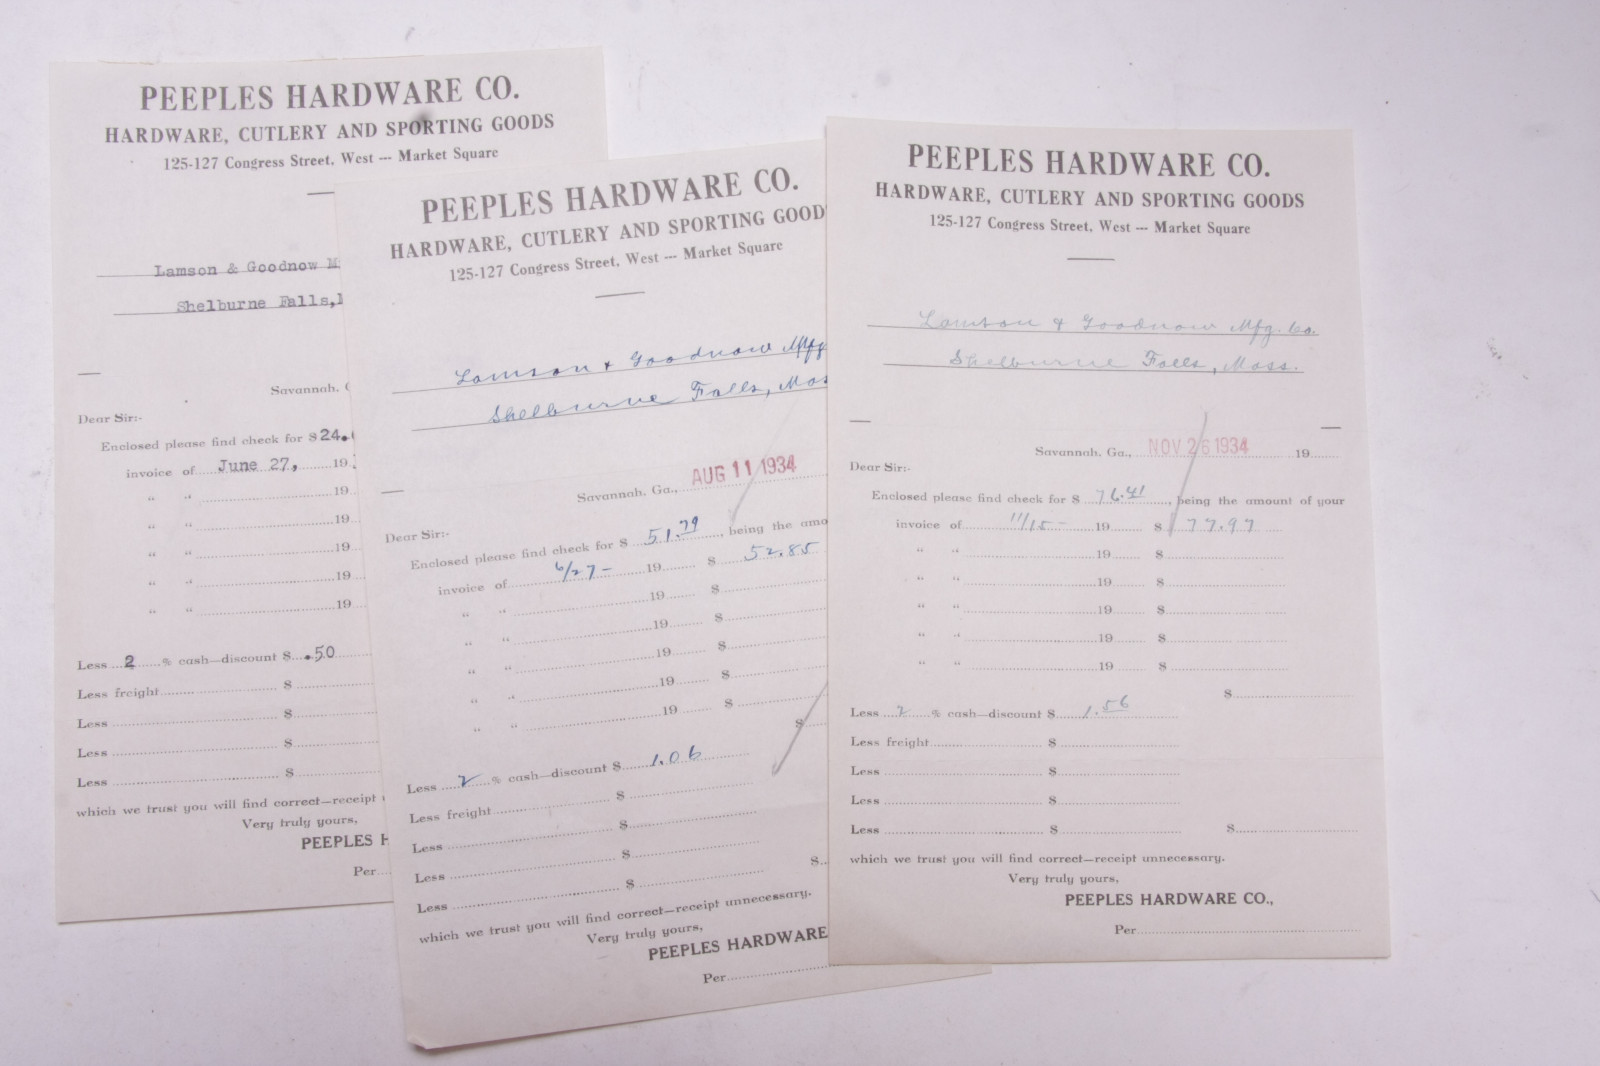 PEEPLES HARDWARE CO.
HARDWARE, CUTLERY AND SPORTING GOODS
125-127 Congress Street, West --- Market Square
Lamson & Goodnow M
Shelburne Falls,
Savannah,
Dear Sir:-
Enclosed please find check for $ 24.
invoice of June 27, 19
" " 19
" " 19
" " 19
" " 19
" " 19
Less 2 % cash—discount $ .50
Less freight $
Less $
Less $
Less $
which we trust you will find correct—receipt
Very truly yours,
PEEPLES H
Per
PEEPLES HARDWARE CO.
HARDWARE, CUTLERY AND SPORTING GOOD
125-127 Congress Street, West --- Market Square
Lamson & Goodnow Mfg
Shelburne Falls, Mas
Savannah, Ga., AUG 11 1934
Dear Sir:-
Enclosed please find check for $ 51.79, being the amo
invoice of 6/27- 19 $ 52.85
" " 19 $
" " 19 $
" " 19 $
" " 19 $
" " 19 $
$
Less 2 % cash—discount $ 1.06
Less freight $
Less $
Less $
Less $ $
which we trust you will find correct—receipt unnecessary.
Very truly yours,
PEEPLES HARDWARE
Per
PEEPLES HARDWARE CO.
HARDWARE, CUTLERY AND SPORTING GOODS
125-127 Congress Street, West --- Market Square
Lamson & Goodnow Mfg. Co.
Shelburne Falls, Mass.
Savannah, Ga., NOV 26 1934 19
Dear Sir:-
Enclosed please find check for $ 76.41, being the amount of your
invoice of 11/15- 19 $ 77.97
" " 19 $
" " 19 $
" " 19 $
" " 19 $
" " 19 $
$
Less 2 % cash—discount $ 1.56
Less freight $
Less $
Less $
Less $ $
which we trust you will find correct—receipt unnecessary.
Very truly yours,
PEEPLES HARDWARE CO.,
Per